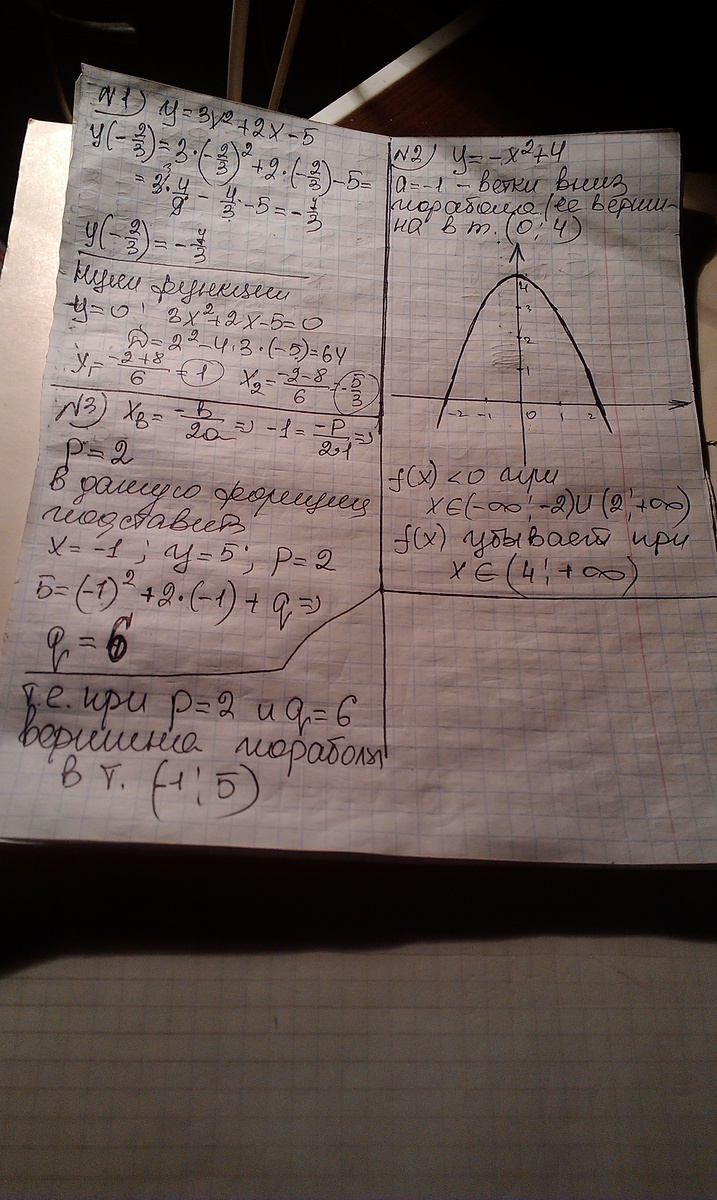 №1) y=3x²+2x-5
y(-2/3)=3·(-2/3)²+2·(-2/3)-5=
=3·4/9 - 4/3 -5=
y(-2/3)=
Нули функции
y=0; 3x²+2x-5=0
D=2²-4·3·(-5)=64
x₁=(-2+8)/6=1 x₂=(-2-8)/6=-5/3
№3) xв=-в/2a ⇒ -1=-p/2·1 ⇒
p=2
в данную формулу
подставить
x=-1; y=5; p=2
5=(-1)²+2·(-1)+q ⇒
q=6
т.е. при p=2 и q=6
вершина параболы
в т. (-1;5)
№2) y=-x²+4
a=-1 - ветки вниз
парабола (ее верши-
на в т. (0;4)
4
3
2
1
-2 -1 0 1 2
f(x)<0 при
x∈(-∞;-2)∪(2;+∞)
f(x) убывает при
x∈(4;+∞)